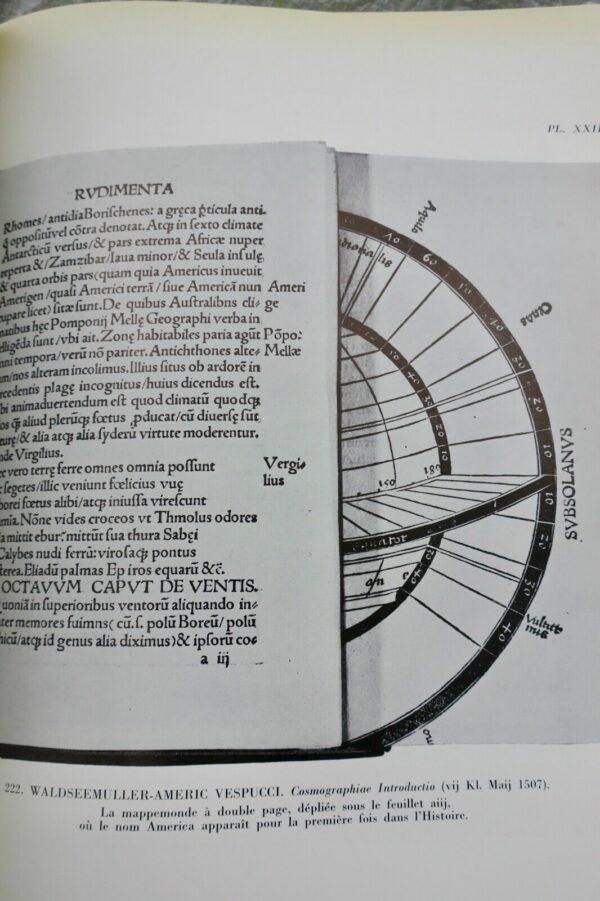 PL. XXII
RVDIMENTA
Rhomes/antidia Borischenes: a gręca p̃ticula anti.
q̃ oppositũvel cõtra denotat. Atqȝ in sexto climate
Antarcticũ versus/& pars extrema Africæ nuper
reperta &/Zamzibar/Iaua minor/& Seula insulę
& quarta orbis pars (quam quia Americus inueuit
Amerigen/quasi Americi terrã/siue Americã nun Ameri
cupare licet) sitæ sunt. De quibus Australibus cli⸗ ge
matibus hęc Pomponij Mellę Geographi verba in
telligẽda sunt/vbi ait. Zonę habitabiles paria agũt Põpo:
anni tempora/verũ nõ pariter. Antichthones alte⸗ Mellæ
ram/nos alteram incolimus. Illius situs ob ardorẽ in
tercedentis plagę incognitus/huius dicendus est.
Vbi animaduertendum est quod climatũ quodqȝ
os q̃ aliud plerũqȝ fœtus ꝓducat/cũ diuersę sũt
turę/& alia atqȝ alia syderũ virtute moderentur.
nde Virgilius.
ec vero terrę ferre omnes omnia possunt Vergi⸗
ic segetes/illic veniunt fœlicius vuę lius
borei fœtus alibi/atqȝ iniussa virescunt
amia. Nõne vides croceos vt Thmolus odores
ia mittit ebur: mittũt sua thura Sabęi
Calybes nudi ferrũ: virosaqȝ pontus
terea. Eliadũ palmas Ep iros equarũ &c̃.
OCTAVVM CAPVT DE VENTIS.
Quoniã in superioribus ventorũ aliquando in⸗
ter memores fuimus (cũ. s. polũ Boreũ/polũ
hicũ/atqȝ id genus alia diximus) & ipsorũ co⸗
a iij
Aquilo
60
50
40
30
20
10
180
150
SVBSOLANVS
10
20
30
40
222. WALDSEEMULLER-AMERIC VESPUCCI. Cosmographiae Introductio (vij Kl. Maij 1507).
La mappemonde à double page, dépliée sous le feuillet aiij,
où le nom America apparaît pour la première fois dans l'Histoire.